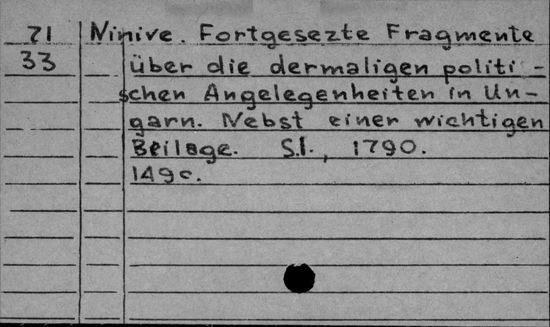 71 Ninive. Fortgesezte Fragmente
33 über die dermaligen politi-
schen Angelegenheiten in Un-
garn. Nebst einer wichtigen
Beilage. S.l., 1790.
149c.